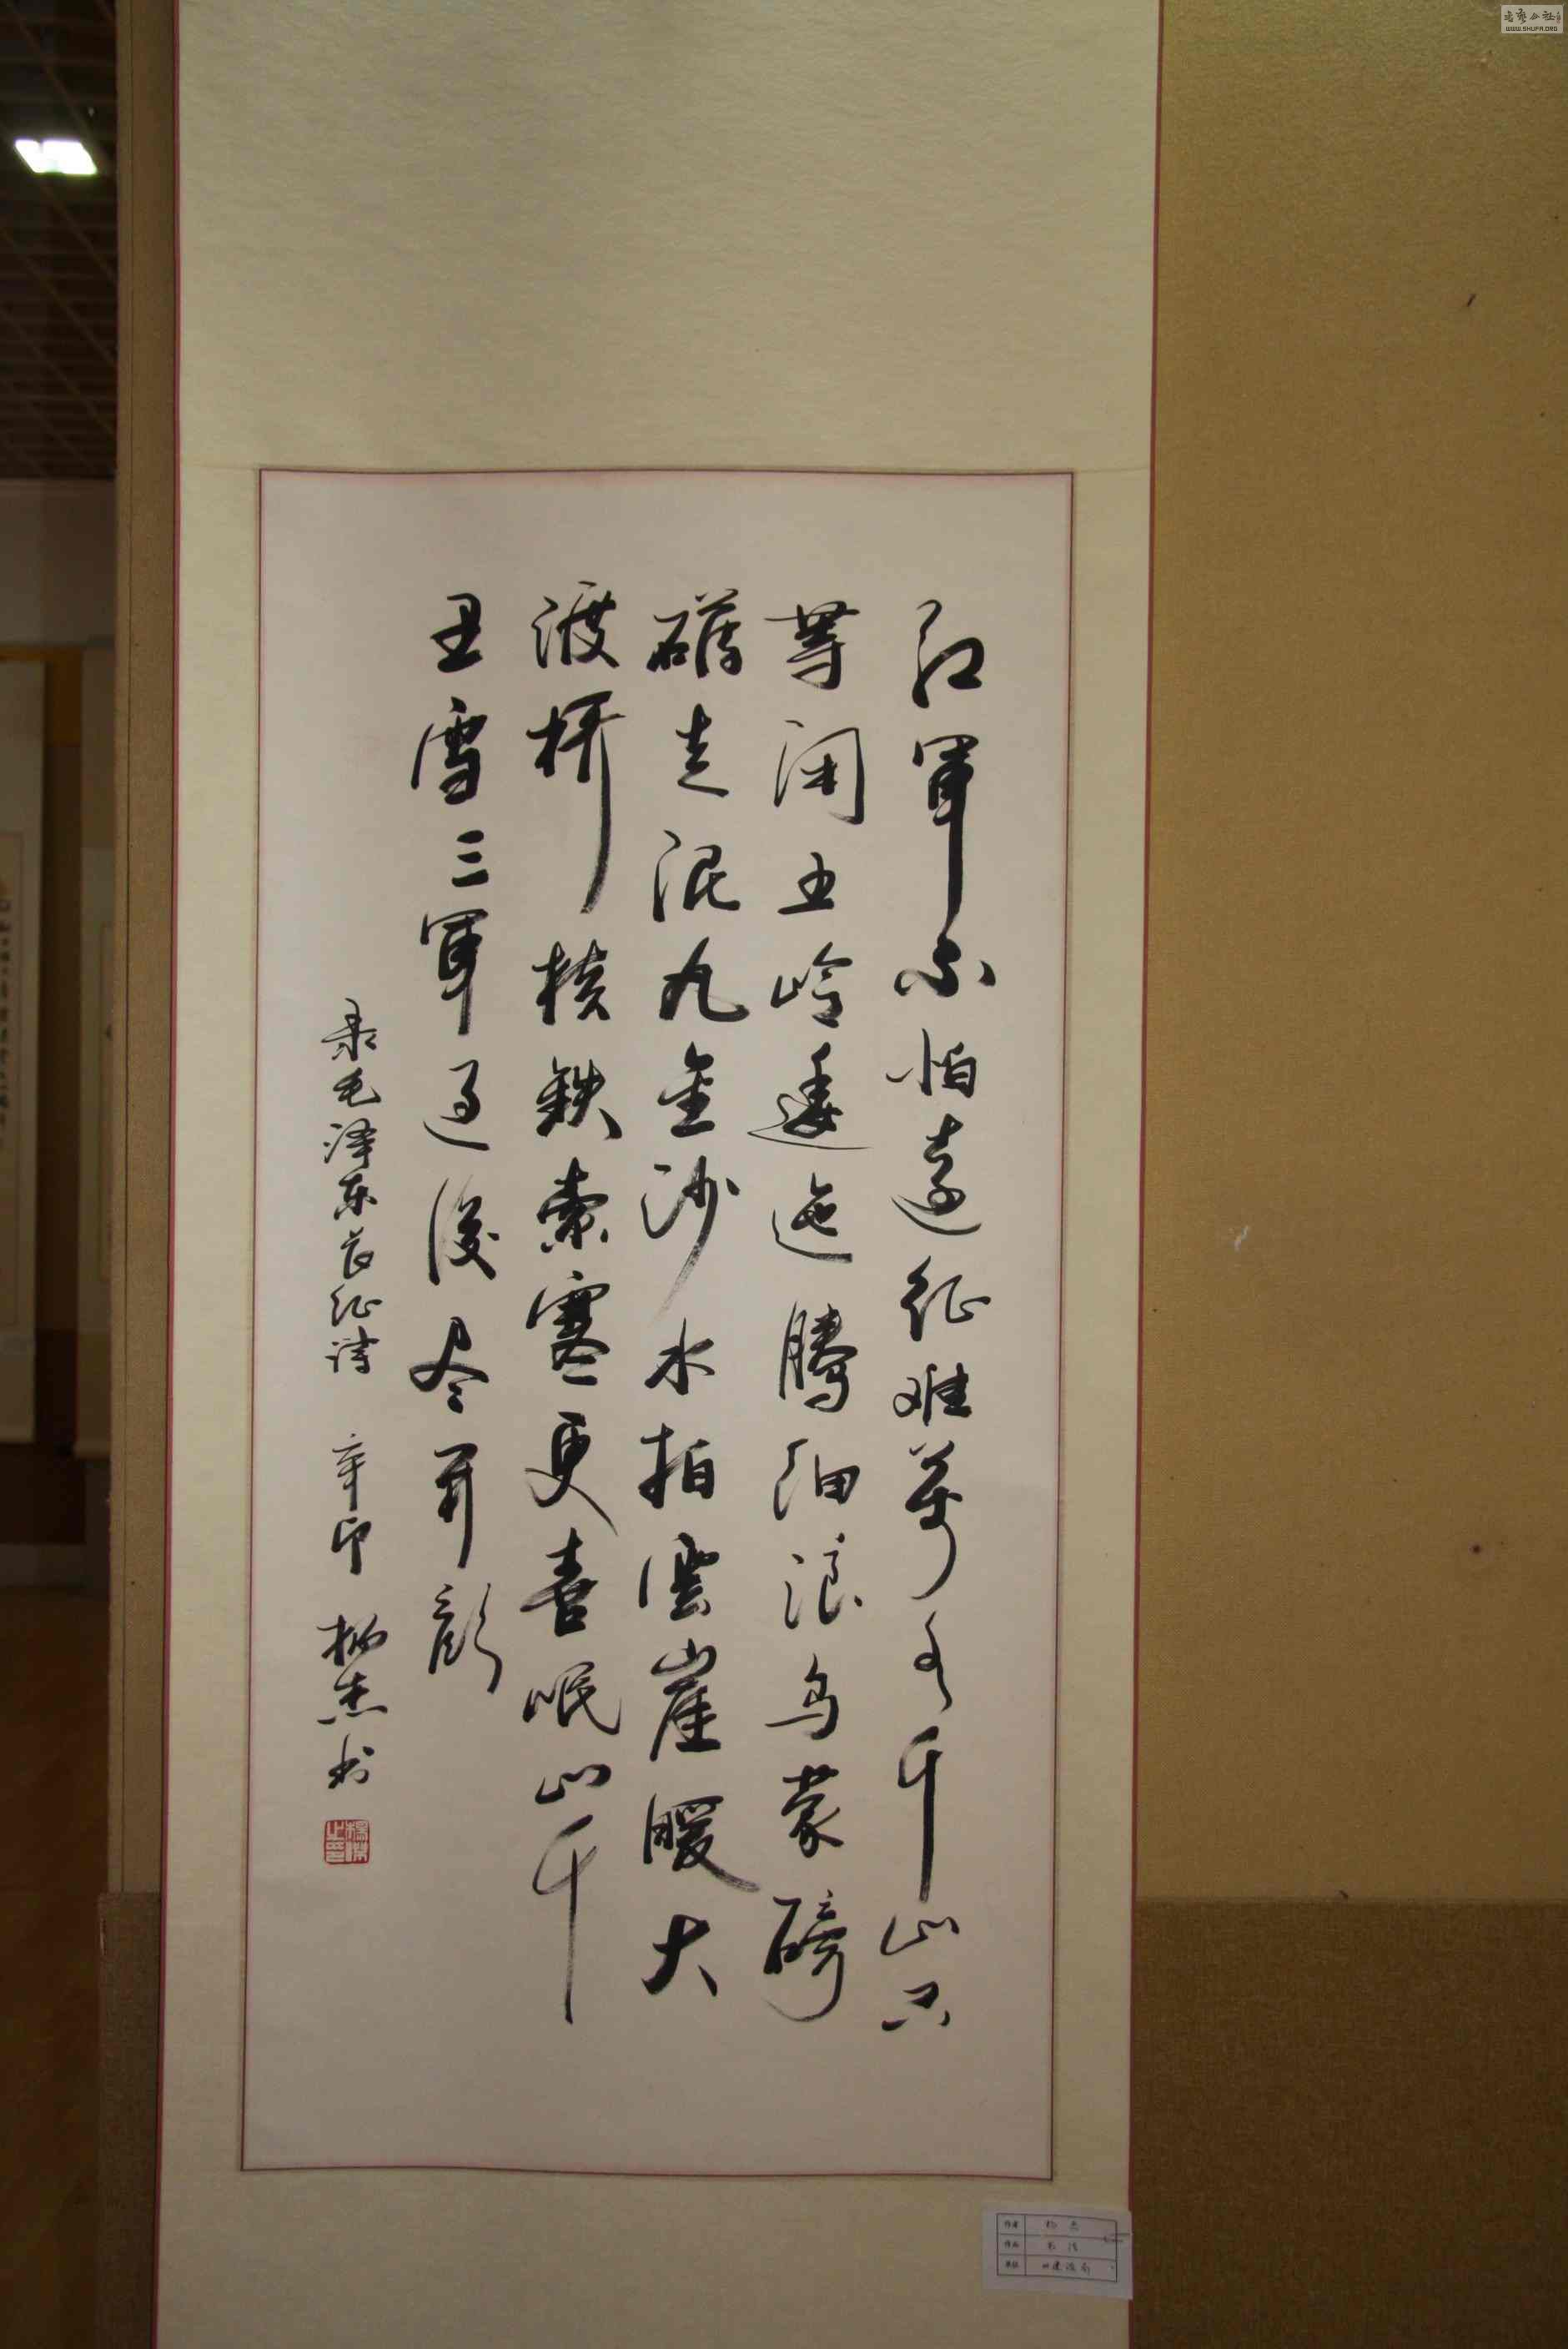 红军不怕遠征难万水千山只
等闲五岭逶迤腾细浪乌蒙磅
礴走泥丸金沙水拍雲崖暖大
渡桥横鉄索寒更喜岷山千
里雪三軍过後尽开颜
录毛泽东长征诗 辛卯 杨杰书
杨杰之印
作者 杨杰
作品 书法
WWW.SHUFA.ORG